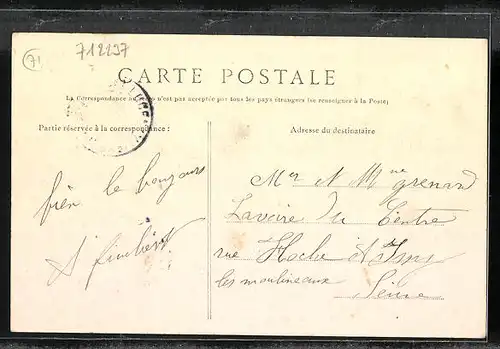 71
712237
CARTE POSTALE
La Correspondance au recto n'est pas acceptée par tous les pays étrangers (se renseigner à la Poste)
Partie réservée à la correspondance :
Adresse du destinataire
bien le bonjour
Mr et Mme grenand
Lavoire du Centre
rue Hoche et Issy
les moulineaux
Seine